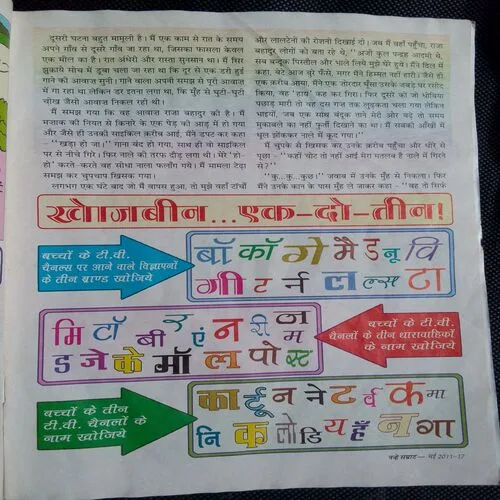 दूसरी घटना बहुत मामूली है। मैं एक काम से रात के समय
अपने गाँव से दूसरे गाँव जा रहा था, जिसका फासला केवल
एक मील का है। रात अंधेरी और रास्ता सुनसान था। मैं सिर
झुकाये सोच में डूबा चला जा रहा था कि दूर से एक डरी हुई
गाने की आवाज सुनी। गाने वाला अपनी समझ से पूरी आवाज
में गा रहा था लेकिन डर इतना लगा था, कि मुँह से घुटी-घुटी
चीख जैसी आवाज निकल रही थी।
मैं समझ गया कि वह आवाज राजा बहादुर की है। मैं
मजाक की नियत से किनारे के एक पेड़ की आड़ में हो गया
और जैसे ही उनकी साइकिल क़रीब आई, मैंने डपट कर कहा
– "खड़ा हो जा।" गाना बंद हो गया, साथ ही वो साइकिल
पर से नीचे गिरे। फिर नाले की तरफ दौड़ लगा थी। मेरे 'हो-
हो' करते-करते वह सीधा नाला फलाँग गये। मैं मामला टेढ़ा
समझ कर चुपचाप खिसक गया।
लगभग एक घंटे बाद जो मैं वापस हुआ, तो मुझे वहाँ टॉर्चों
और लालटेनों की रोशनी दिखाई दी। जब मैं वहाँ पहुँचा, राजा
बहादुर लोगों को बता रहे थे, "अजी कुल पन्द्रह आदमी थे,
सब बन्दूक पिस्तौल और भाले लिये मुझे घेरे हुये। मैंने दिल में
कहा, बेटे आज बुरे फँसे, मगर मैंने हिम्मत नहीं हारी। जैसे ही
एक क़रीब आया। मैंने एक जोरदार घूँसा उसके जबड़े पर रसीद
किया, वह 'हाय' कह का गिरा। फिर दूसरे को जो धोबिया
पछाड़ मारी तो वह दस गज तक लुढ़कता चला गया लेकिन
भाइयों, जब एक साथ बंदूक ताने मेरी ओर बढ़े तो समय
मुकाबले का नहीं फुर्ती दिखाने का था। मैं सबकी आँखों में
धूल झोंककर नाले में कूद गया।"
मैं चुपके से खिसक कर उनके क़रीब पहुँचा और धीरे से
पूछा – "कहीं चोट तो नहीं आई मेरा मतलब है नाले में गिरने
से?"
"कु...कु...कुछ।" जवाब में उनके मुँह से निकला। फिर
मैंने उनके कान के पास मुँह ले जाकर कहा – "वह तो सिर्फ
खोजबीन...एक-दो-तीन!
बच्चों के टी.वी.
चैनल्स पर आने वाले विज्ञापनों
के तीन ब्राण्ड खोजिये
बॉ कॉ गे मै ड नू वि
गी ट र्न ल ल्स टा
मि टॉ बी र एं न री ज म
ड जे के मॉ ल पो स्ट
बच्चों के टी.वी.
चैनलों के तीन धारावाहिकों
के नाम खोजिये
बच्चों के तीन
टी.वी. चैनलों के
नाम खोजिये
का र्टू न ने ट र्व क मा
नि क लो डि य हँ न गा
नन्हे सम्राट — मई 2011-37